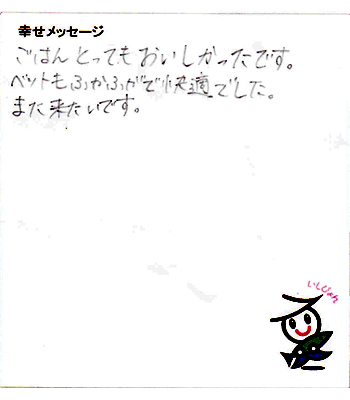 幸せメッセージ
ごはんとってもおいしかったです。
ベットもふかふかで快適でした。
また来たいです。